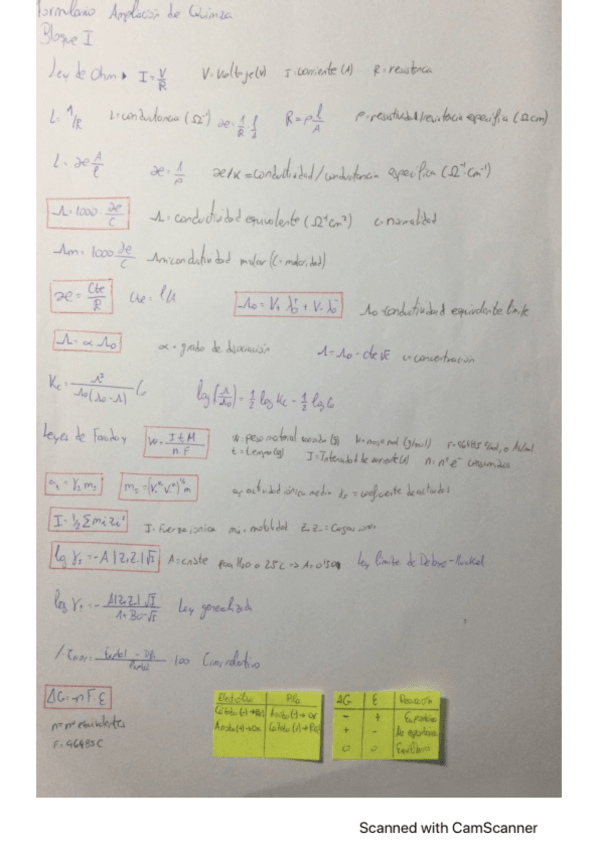 Formulario Ampliación de Química
Bloque I
Ley de Ohm ▸ I = V/R V = Voltaje (V) I: corriente (A) R = resistencia
L = 1/R L = conductancia (Ω⁻¹) æ = 1/R · l/A R = ρ l/A ρ = resistividad/resistencia específica (Ω cm)
L = æ A/l æ = 1/ρ æ/κ = conductividad/conductancia específica (Ω⁻¹ cm⁻¹)
Λ = 1000 · æ/C Λ = conductividad equivalente (Ω⁻¹ cm²) c = normalidad
Λm = 1000 æ/C Λm: conductividad molar (C = molaridad)
æ = Cte/R Cte = l/A Λ₀ = V₊ λ₀⁺ + V₋ λ₀⁻ Λ₀ conductividad equivalente límite
Λ = α Λ₀ α = grado de disociación Λ = Λ₀ - cte √c c = concentración
Kc = Λ²/Λ₀(Λ₀ - Λ) C₀ log(Λ/Λ₀) = 1/2 log Kc - 1/2 log C₀
Leyes de Faraday W = I t M/n. F
t = tiempo (s) I = Intensidad de corriente (A) n: nº e⁻
a± = γ± m± m± = (V₊ V₋) m a± actividad iónica media γ± = coeficiente de actividad
I = 1/2 Σ mi zi² I = Fuerza iónica mi = molalidad
log γ± = - A |Z₊Z₋| √I A = cnste para H₂O a 25 C → A = 0'509 Ley límite de Debye-Hückel
log γ± = - A|Z₊Z₋| √I/1 + Ba √I Ley generalizada
100 Error relativo
ΔG = -n F · E
nº equivalentes
F = 96485 C
Electrólisis Pila
Cátodo (-) → Red Ánodo (-) → Ox
Ánodo (+) → Ox Cátodo (+) → Red
ΔG E Reacción
- + Espontánea
+ - No espontánea
0 0 Equilibrio
Scanned with CamScanner